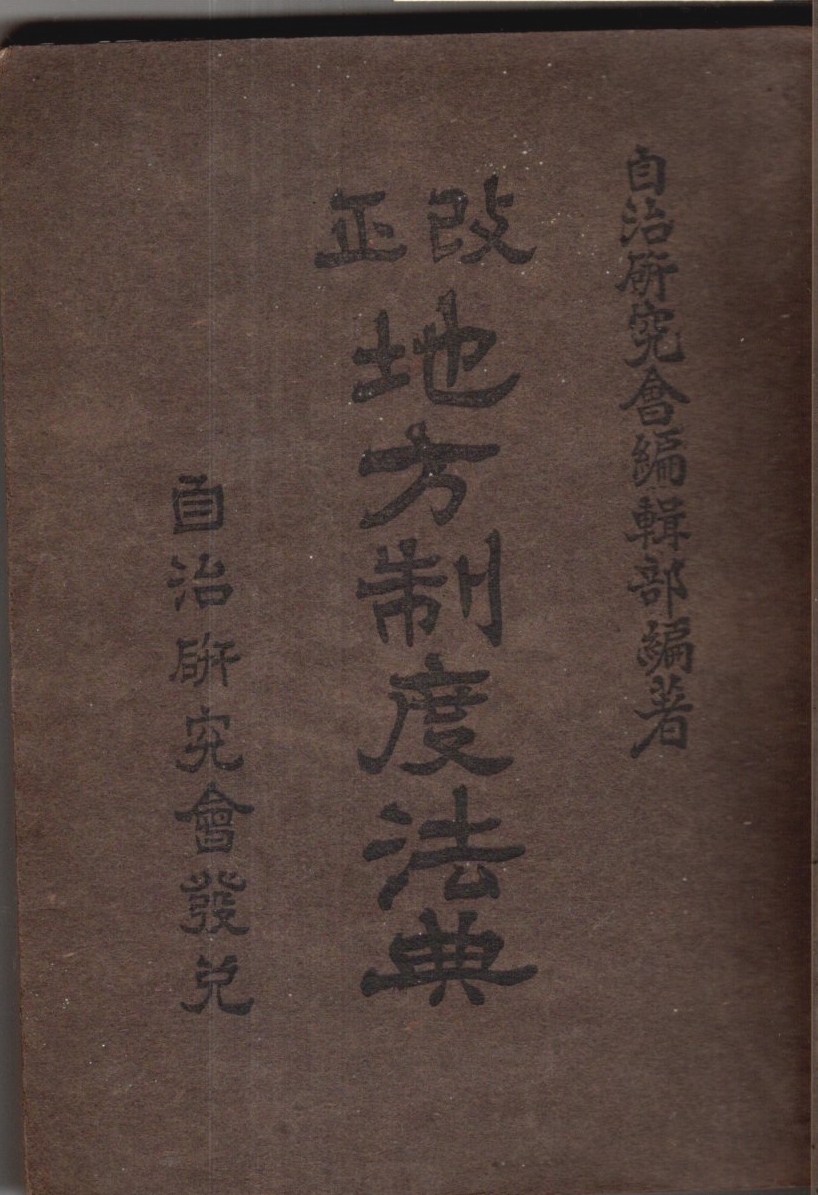 自治研究會編輯部編著
改正
地方制度法典
自治研究會發兌